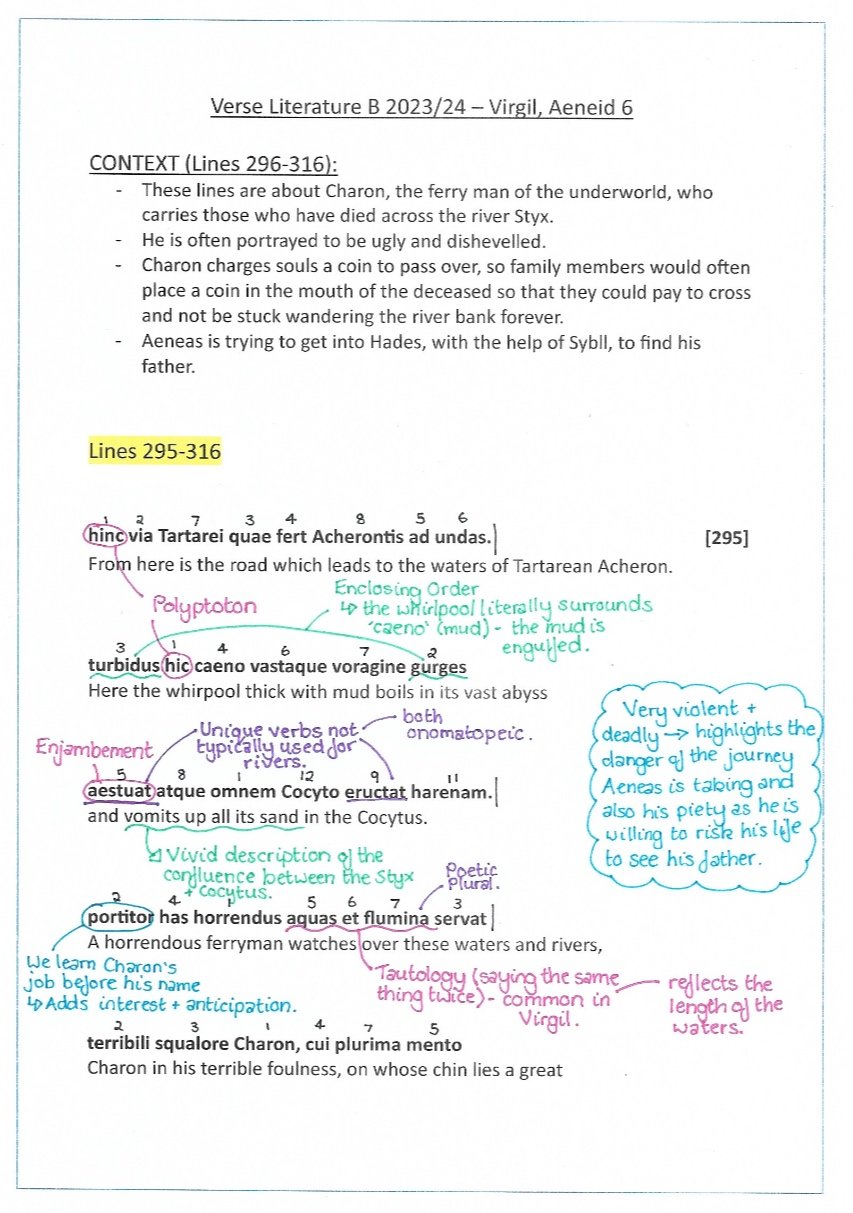 Verse Literature B 2023/24 – Virgil, Aeneid 6
CONTEXT (Lines 296-316):
- These lines are about Charon, the ferry man of the underworld, who
carries those who have died across the river Styx.
- He is often portrayed to be ugly and dishevelled.
- Charon charges souls a coin to pass over, so family members would often
place a coin in the mouth of the deceased so that they could pay to cross
and not be stuck wandering the river bank forever.
- Aeneas is trying to get into Hades, with the help of Sybll, to find his
father.
Lines 295-316
1 2 7 3 4 8 5 6
hinc via Tartarei quae fert Acherontis ad undas. [295]
From here is the road which leads to the waters of Tartarean Acheron.
Polyptoton
Enclosing Order
↳ the whirlpool literally surrounds
'caeno' (mud) - the mud is
engulfed.
3 1 4 6 7 2
turbidus hic caeno vastaque voragine gurges
Here the whirpool thick with mud boils in its vast abyss
Enjambement
Unique verbs not
typically used for
rivers.
both
onomatopeic.
Very violent +
deadly → highlights the
danger of the journey
Aeneas is taking and
also his piety as he is
willing to risk his life
to see his father.
5 8 1 12 9 11
aestuat atque omnem Cocyto eructat harenam.
and vomits up all its sand in the Cocytus.
↳ Vivid description of the
confluence between the Styx
+ Cocytus.
Poetic
Plural.
2 4 1 5 6 7 3
portitor has horrendus aquas et flumina servat
A horrendous ferryman watches over these waters and rivers,
We learn Charon's
job before his name
↳ Adds interest + anticipation.
Tautology (saying the same
thing twice) - common in
Virgil.
reflects the
length of the
waters.
2 3 1 4 7 5
terribili squalore Charon, cui plurima mento
Charon in his terrible foulness, on whose chin lies a great